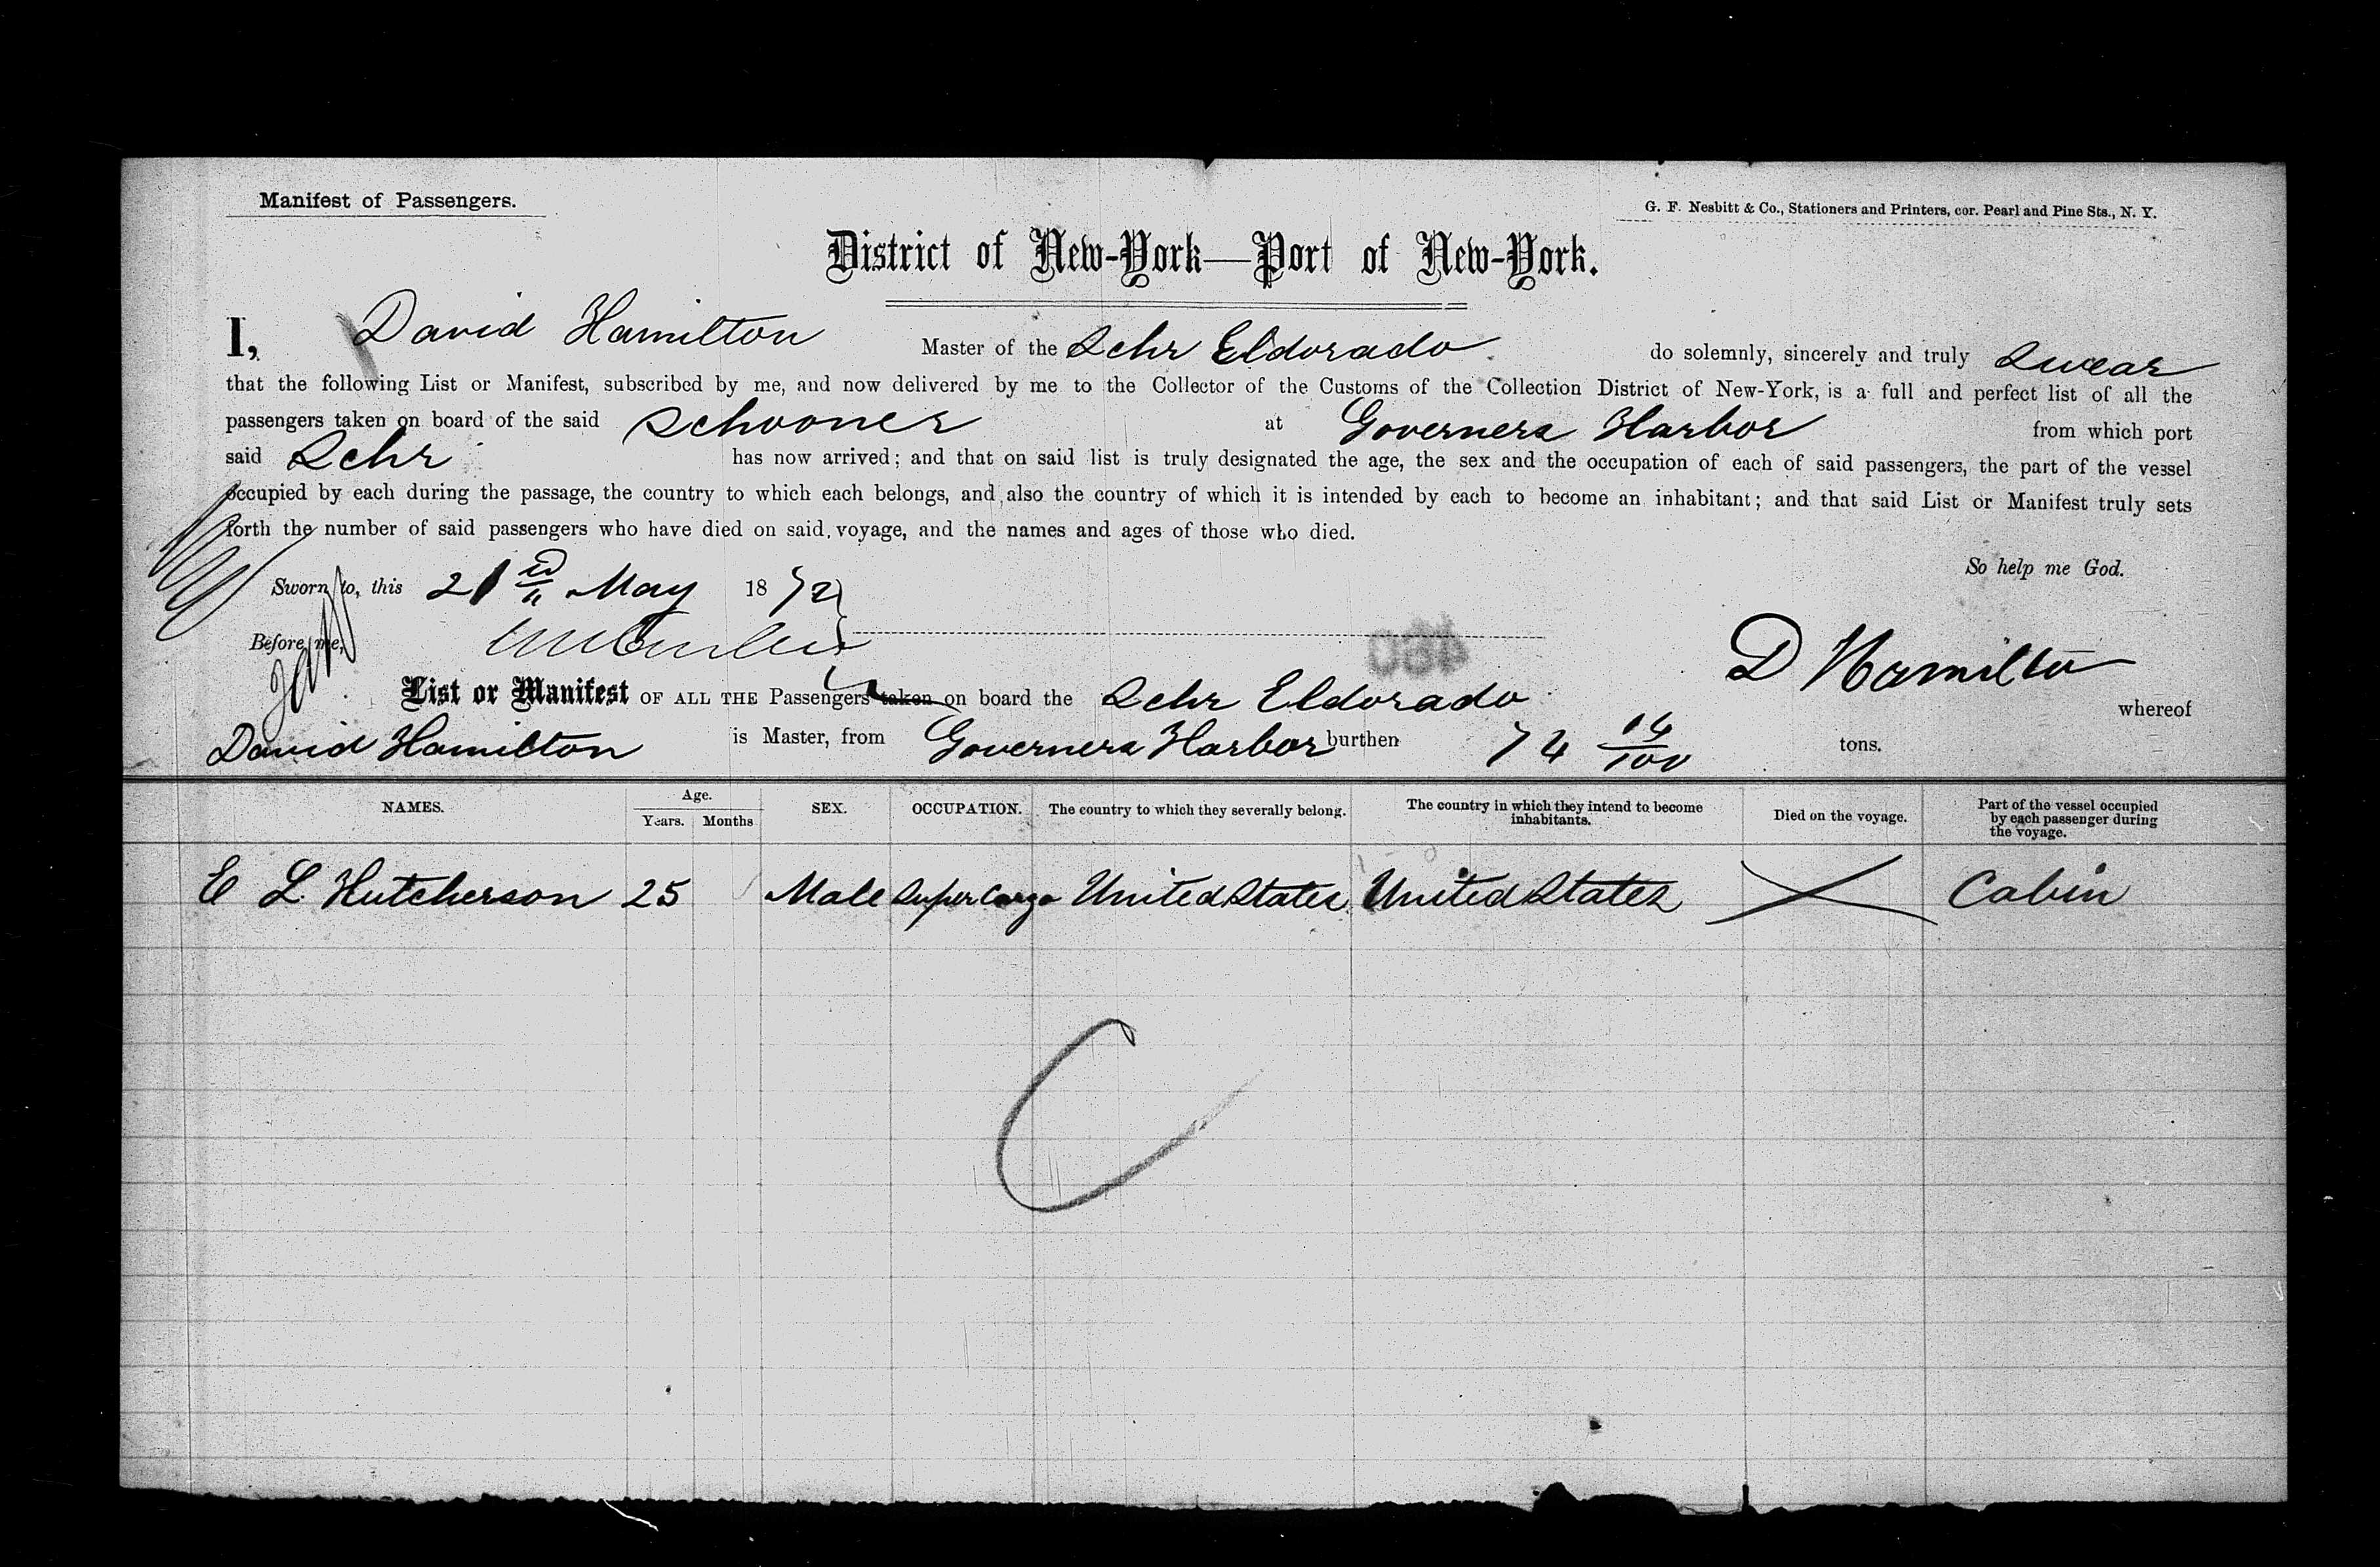 Manifest of Passengers.
G. F. Nesbitt & Co., Stationers and Printers, cor. Pearl and Pine Sts., N. Y.
District of New-York—Port of New-York.
I, David Hamilton Master of the Schr Eldorado do solemnly, sincerely and truly Swear
that the following List or Manifest, subscribed by me, and now delivered by me to the Collector of the Customs of the Collection District of New-York, is a full and perfect list of all the
passengers taken on board of the said Schooner at Governers Harbor from which port
said Schr has now arrived; and that on said list is truly designated the age, the sex and the occupation of each of said passengers, the part of the vessel
occupied by each during the passage, the country to which each belongs, and also the country of which it is intended by each to become an inhabitant; and that said List or Manifest truly sets
forth the number of said passengers who have died on said voyage, and the names and ages of those who died.
So help me God.
Sworn to, this 21 May 1872
Before me,
D Hamilton
List or Manifest OF ALL THE Passengers taken on board the Schr Eldorado whereof
David Hamilton is Master, from Governers Harbor burthen 74 tons.
NAMES. Age. Years. Months SEX. OCCUPATION. The country to which they severally belong. The country in which they intend to become inhabitants. Died on the voyage. Part of the vessel occupied by each passenger during the voyage.
E L. Hutcherson 25 Male Super Cargo United States United States Cabin
C